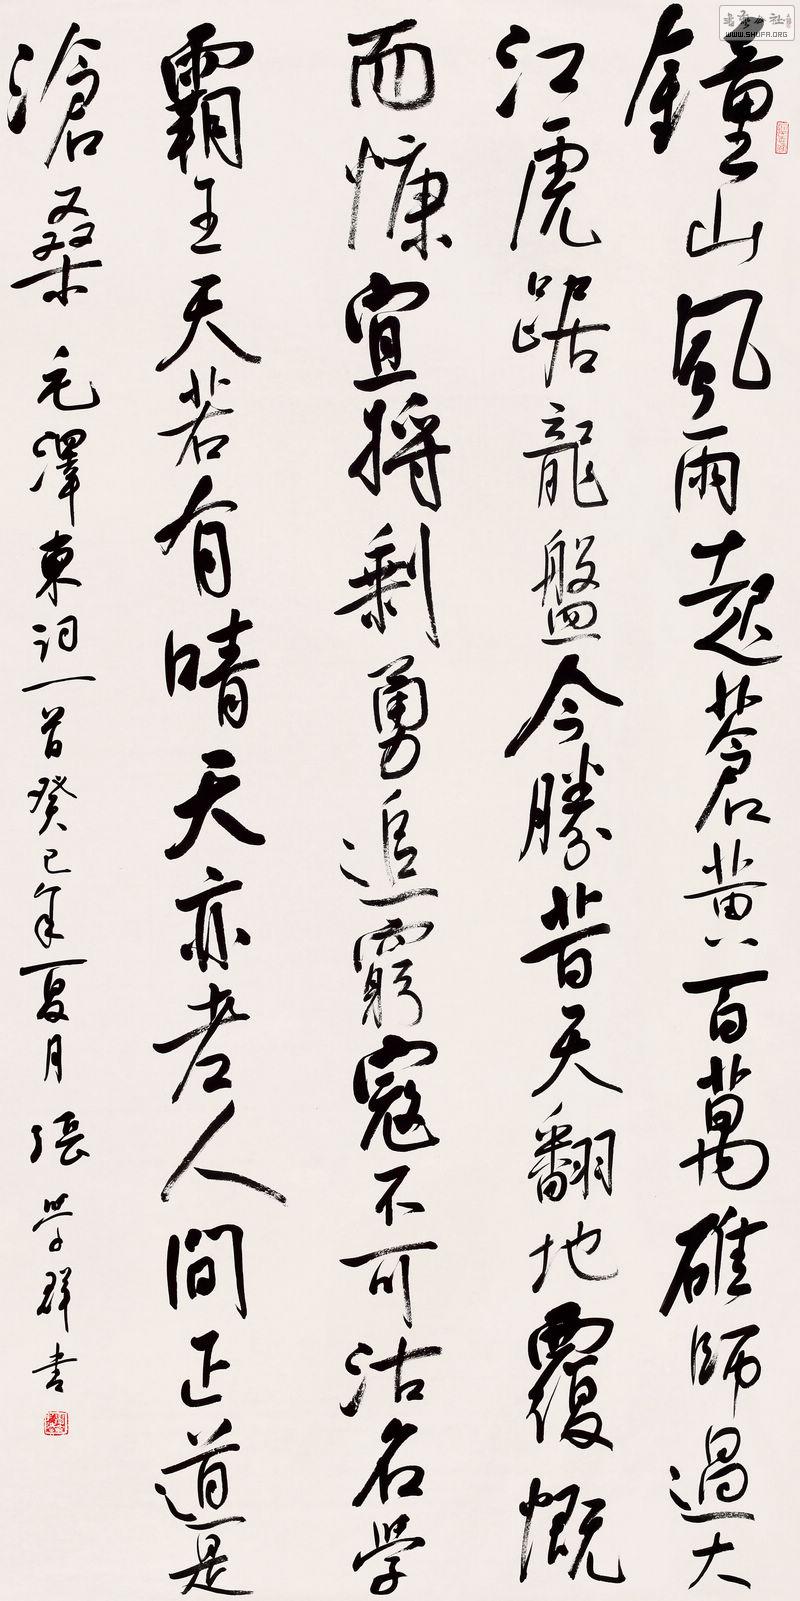 鐘山風雨起蒼黄百萬雄師過大
江虎踞龍盤今勝昔天翻地覆慨
而慷宜將剩勇追窮寇不可沽名學
霸王天若有晴天亦老人間正道是
滄桑 毛澤東詞一首癸巳年夏月 張學群書
WWW.SHUFA.ORG